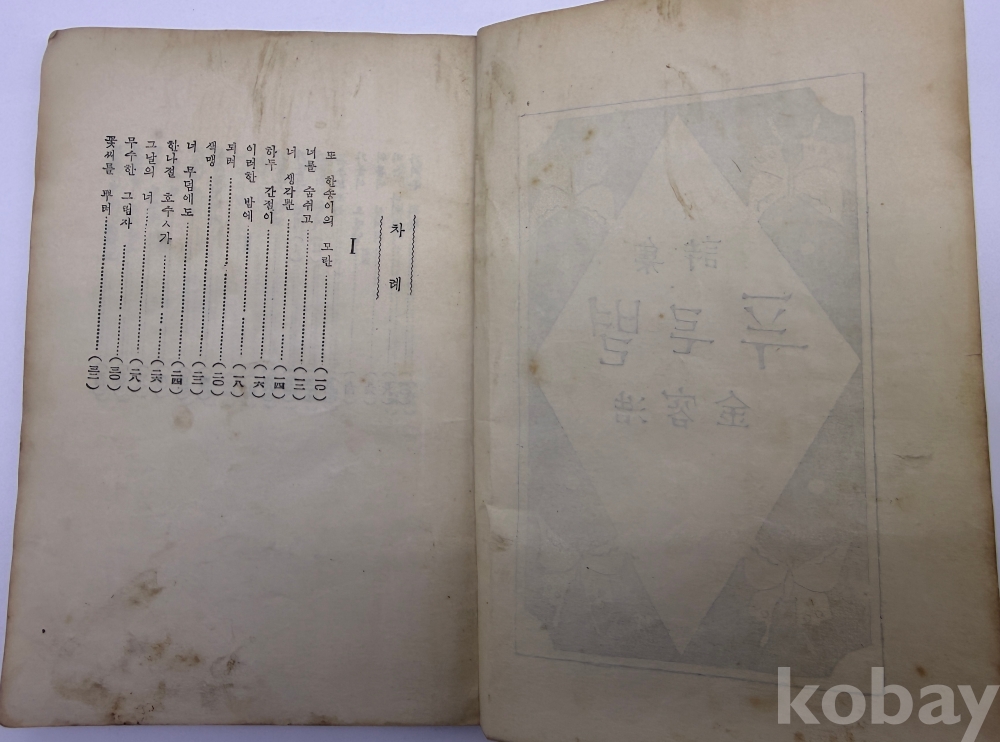 詩集
푸른별
金容浩
차례
I
또 한송이의 모란 ……(一〇)
너를 숨쉬고 ……(一二)
너 생각뿐 ……(一四)
하두 간절이 ……(一六)
이러한 밤에 ……(一八)
되려 ……(二〇)
색맹 ……(二二)
너 무덤에도 ……(二四)
한나절 호수ㅅ가 ……(二六)
그날의 너 ……(二八)
무수한 그림자 ……(三〇)
꽃씨를 뿌려 ……(三二)
kobay